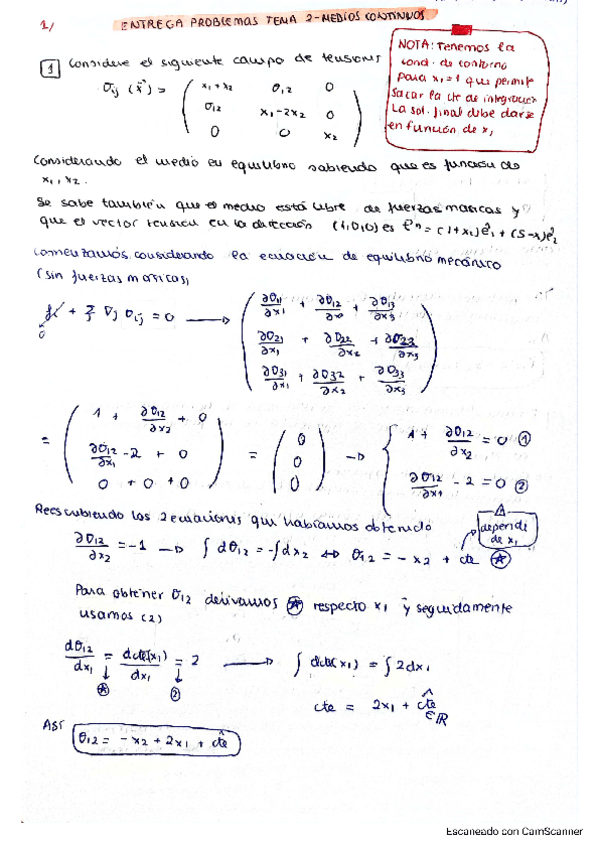 1,
ENTREGA PROBLEMAS TEMA 2-MEDIOS CONTINUOS
NOTA: Tenemos la
cond. de contorno
para x₁=1 que permite
sacar la cte de integración
La sol. final debe darse
en función de x₁
1 Considere el siguiente campo de tensiones
σij (x⃗) = ( x₁+x₂ σ₁₂ 0
σ₁₂ x₁-2x₂ 0
0 0 x₂ )
Considerando el medio en equilibrio sabiendo que es función de
x₁, x₂.
Se sabe también que el medio está libre de fuerzas másicas y
que el vector tensión en la dirección (1,0,0) es t⃗ⁿ = (1+x₂)e⃗₁ + (5-x₂)e⃗₂
Comenzamos considerando la ecuación de equilibrio mecánico
(sin fuerzas másicas)
+ Σj ∇j σij = 0 → ( ∂σ₁₁/∂x₁ + ∂σ₁₂/∂x₂ + ∂σ₁₃/∂x₃
0
∂σ₂₁/∂x₁ + ∂σ₂₂/∂x₂ + ∂σ₂₃/∂x₃
∂σ₃₁/∂x₁ + ∂σ₃₂/∂x₂ + ∂σ₃₃/∂x₃ )
= ( 1 + ∂σ₁₂/∂x₂ + 0
∂σ₁₂/∂x₁ - 2 + 0
0 + 0 + 0 ) = ( 0 0 0 ) → { 1 + ∂σ₁₂/∂x₂ = 0 ①
∂σ₁₂/∂x₁ - 2 = 0 ②
Reescribiendo las 2 ecuaciones que habíamos obtenido
depende
de x₁
∂σ₁₂/∂x₂ = -1 → ∫dσ₁₂ = -∫dx₂ ↔ σ₁₂ = -x₂ + cte ✪
Para obtener σ₁₂ derivamos ✪ respecto x₁ y seguidamente
usamos (2)
dσ₁₂/dx₁ = dcte(x₁)/dx₁ = 2 → ∫dcte(x₁) = ∫2dx₁
✪ ②
cte = 2x₁ + ctê
∈ℝ
Así σ₁₂ = -x₂ + 2x₁ + ctê
Escaneado con CamScanner